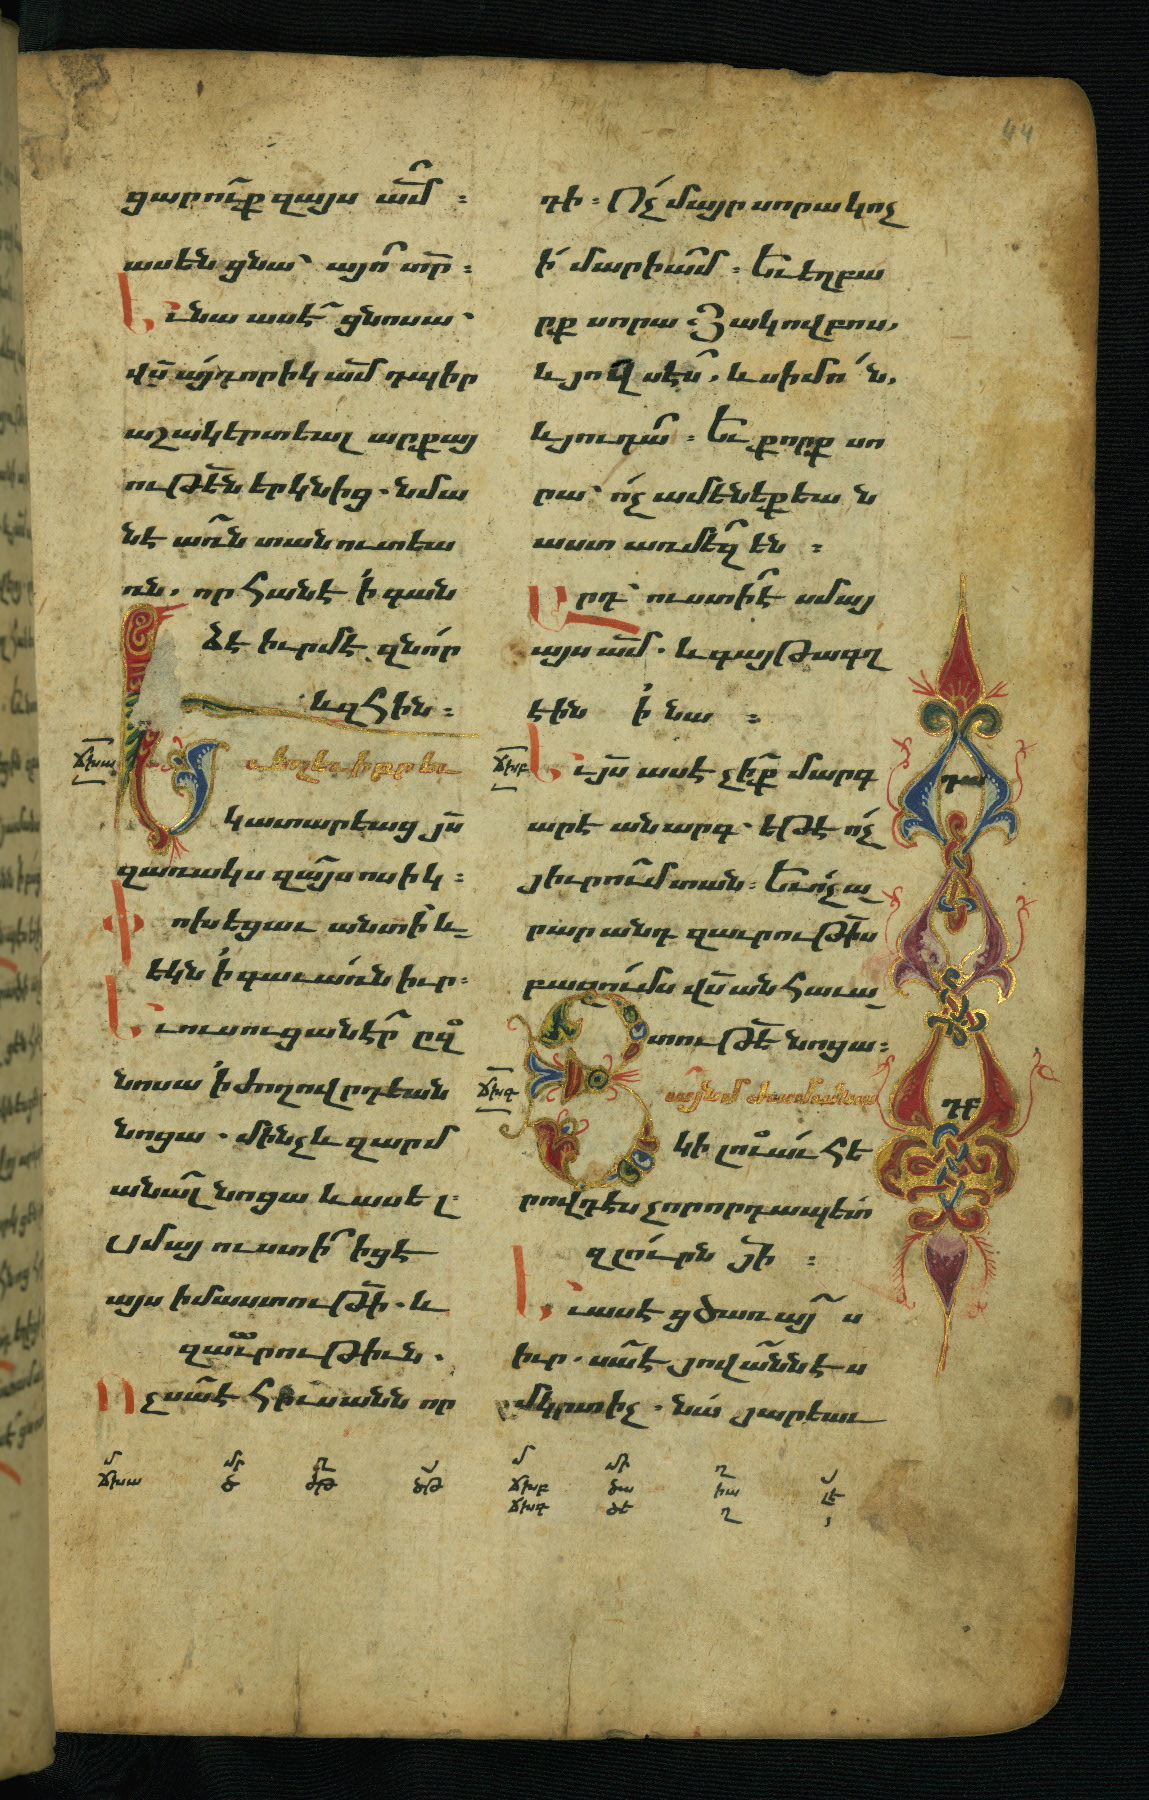 44
ցարուք զայս ամ :
ասեն ցնա՝ այո տր :
Եւ նա ասէ ցնոսա՝
վս այդորիկ ամ դպիր
աշակերտեալ արքայ
ութեն երկնից . նմա
նէ առն տանուտեա
ռն . որ հանէ ի գան
ձէ իւրմէ զնոր
և զհին :
ճխա
Եւ եղև իբրև
կատարեաց յս
զառակս զայսոսիկ :
Փոխեցաւ անտի և
եկն ի գաւառն իւր :
Եւ ուսուցանէր ընդ
նոսա ի ժողովրդեան
նոցա . մինչև զարմ
անալ նոցա և ասել :
Սմայ ուստի իցէ
այս իմաստութի . և
զաւրութիւն .
Ոչ սա է հիւսանն որ
դի : Ոչ մայր սորա կոչ
ի մարիամ : Եւ եղբա
րք սորա Յակովբոս ,
և յովսէս , և սիմոն ,
և յուդա : Եւ քորք սո
րա՝ ոչ ամենեքեան
աստ առ մեզ են :
Արդ՝ ուստի է սմայ
այս ամ . և գայթագղ
էին ի նա :
ճխբ
Եւ յս ասէ չեք մարգ
արէ անարգ . եթէ ոչ
յիւրում տան : Եւ ոչ ա
րար անդ զաւրութիս
բազումս վս անհաւա
տութե նոցա :
ճխգ
Յայնմ ժամանա
կի լուաւ հե
րովդէս չորորդապետ
զլուրն յի :
Եւ ասէ ցծառայս
իւր . սա է յովաննէս
մկրտիչ . նա յարեաւ
դա
դբ
մ մր ղ
ճխա ծ ծթ ծթ
մ մր ղ
ճխբ ծա իա լէ
ճխգ ծէ ղ